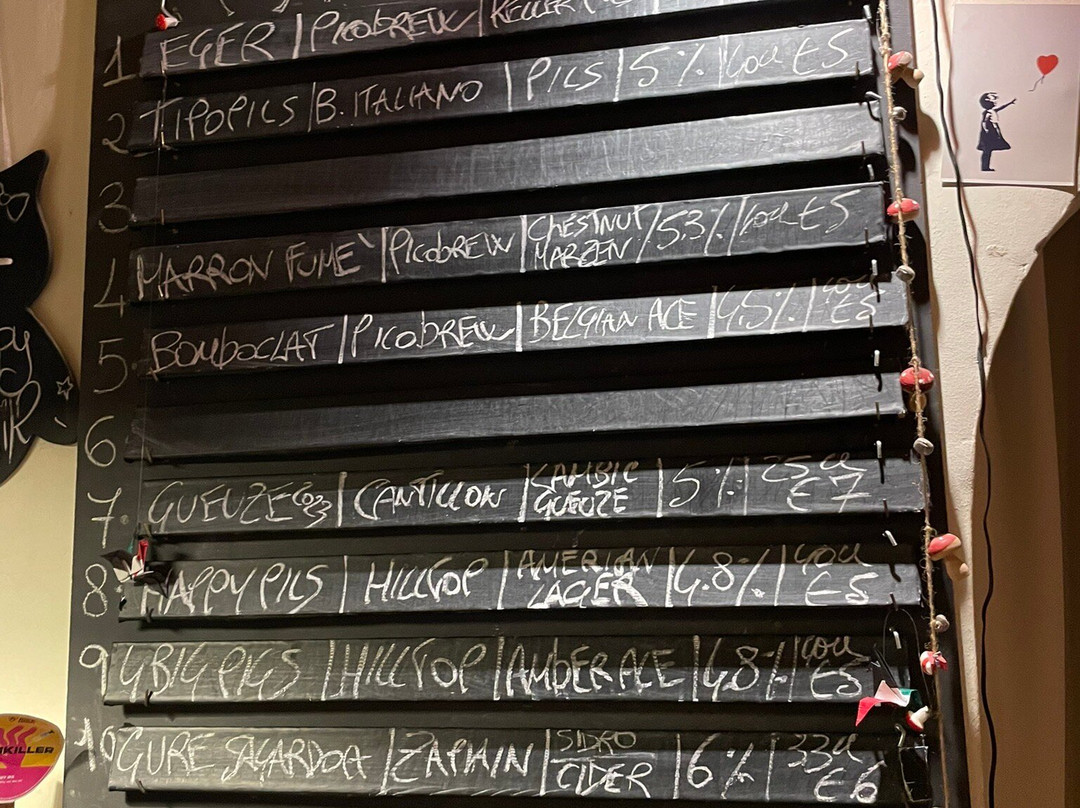 1 EGER | PICOBREW | KELLER
2 TIPOPILS | B. ITALIANO | PILS | 5% | 40cl £5
3
4 MARRON FUME` | PICOBREW | CHESTNUT MARZEN | 5.3% | 40cl £5
5 BOMBOCLAT | PICOBREW | BELGIAN ALE | 4.5% | 40cl £5
6
7. GUEUZE | CANTILLON | LAMBIC GUEUZE | 5% | 25cl £7
8. HAPPY PILS | HILLTOP | AMERICAN LAGER | 4.8% | 40cl £5
9 4BIG PIGS | HILLTOP | AMBER ALE | 4.8% | 40cl £5
10 GURE SAGARDOA | ZAPIAIN | SIDRO CIDER | 6% | 33cl £6